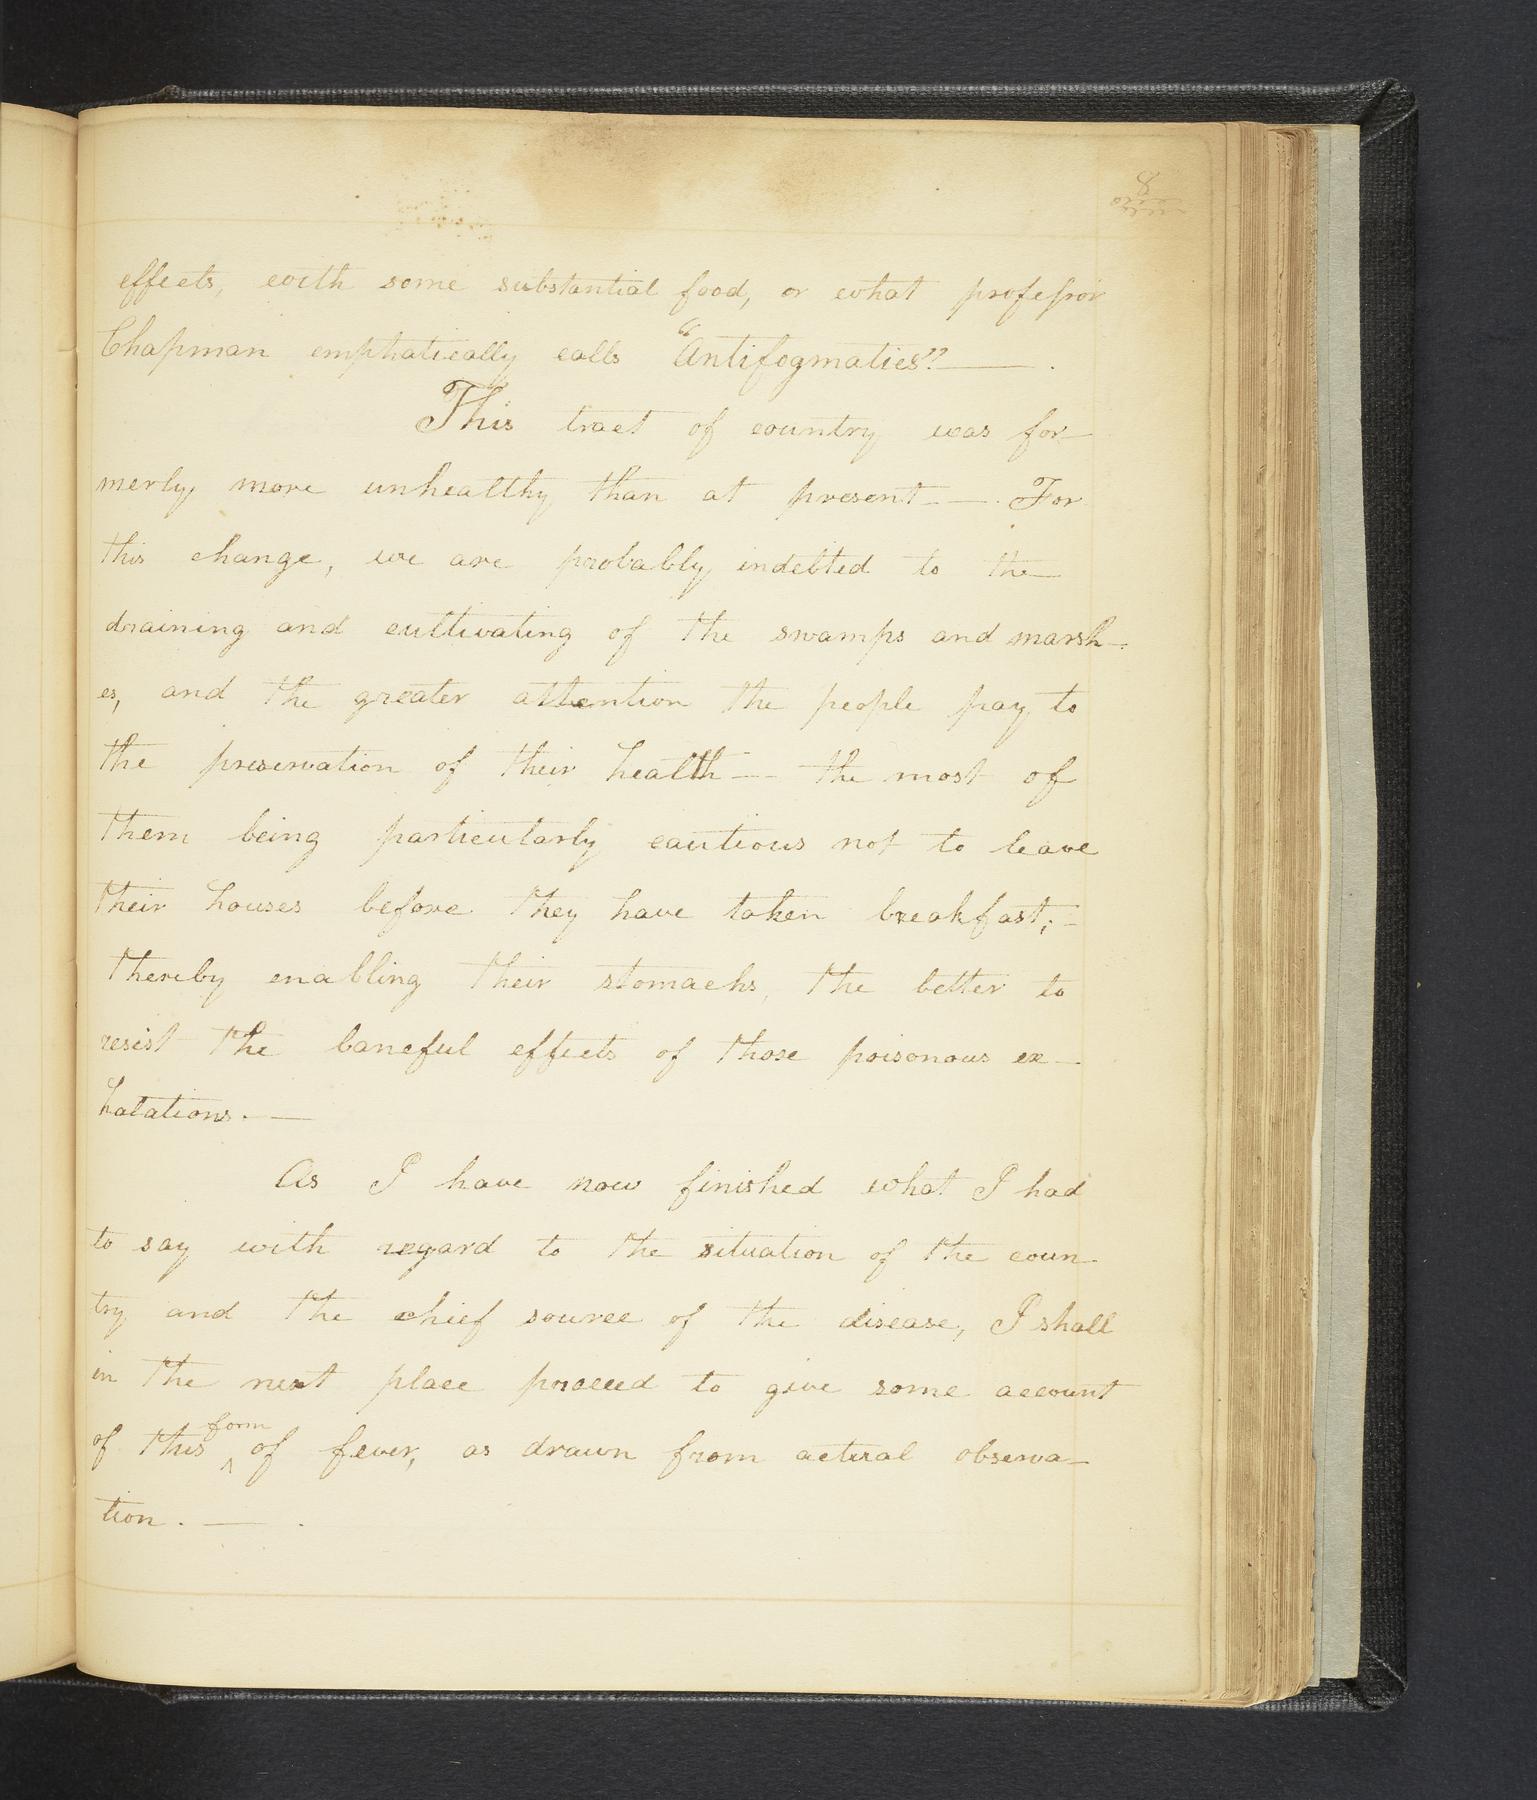 8
effects, with some substantial food, or what professor
Chapman emphatically calls "Antifogmatics" —— .
This tract of country was for-
merly more unhealthy than at present — . For
this change, we are probably indebted to the
draining and cultivating of the swamps and marsh-
es, and the greater attention the people pay to
the preservation of their health — the most of
them being particularly cautious not to leave
their houses before they have taken breakfast; -
thereby enabling their stomachs, the better to
resist the baneful effects of those poisonous ex-
halations. —
As I have now finished what I had
to say with regard to the situation of the coun-
try and the chief source of the disease, I shall
in the next place proceed to give some account
of this ^form of fever, as drawn from actual observa-
tion . — .